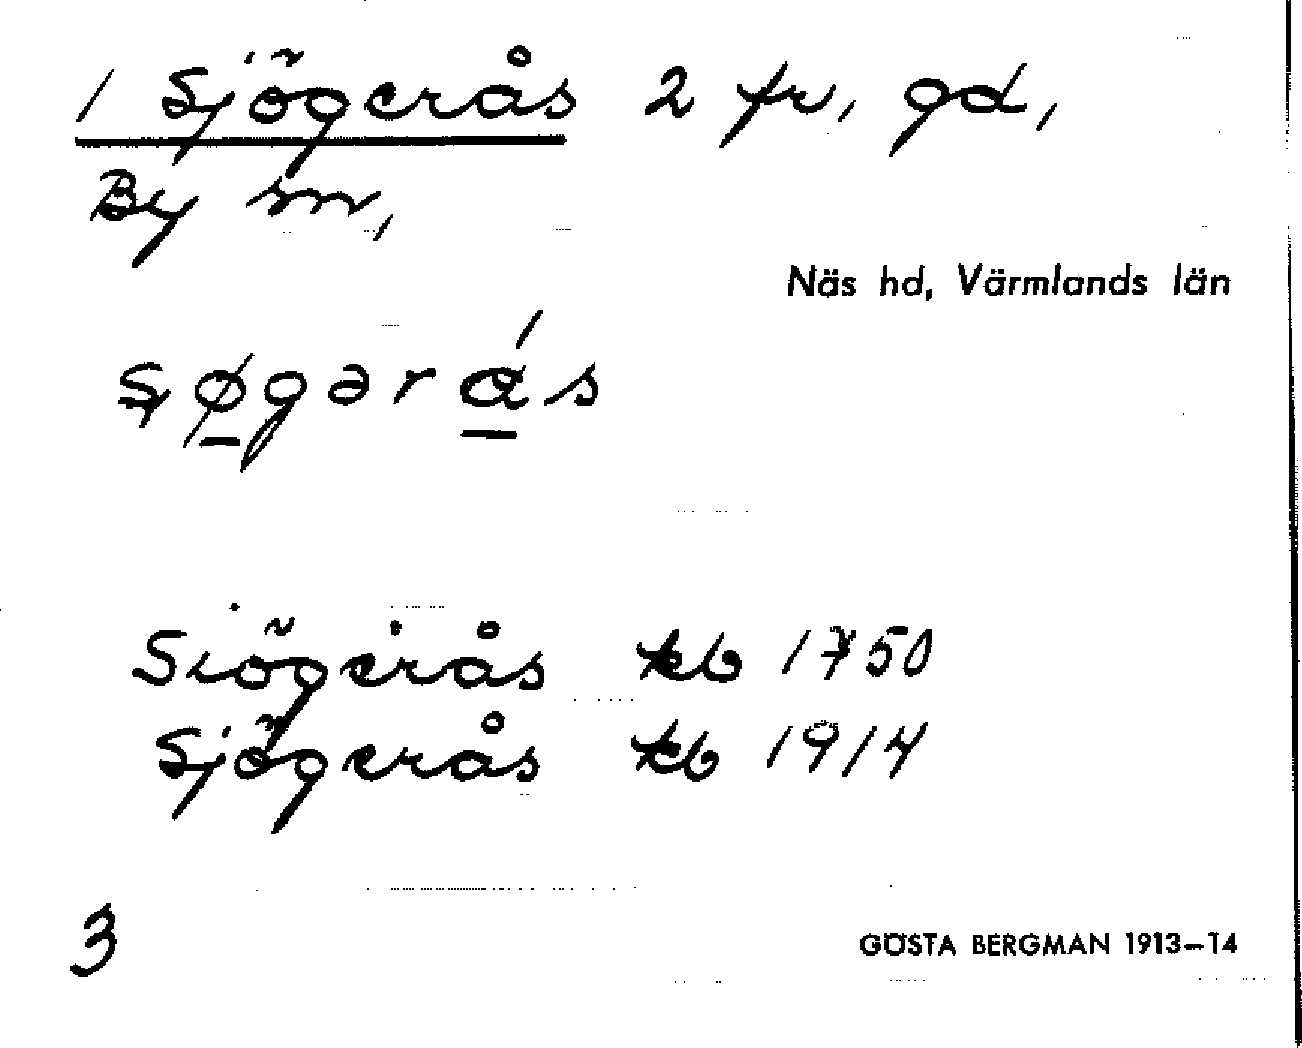 1 Sjögerås 2 fr, gd,
By sn,
Näs hd, Värmlands län
Siögerås kb 1750
Sjögerås kb 1914
3
GÖSTA BERGMAN 1913–14